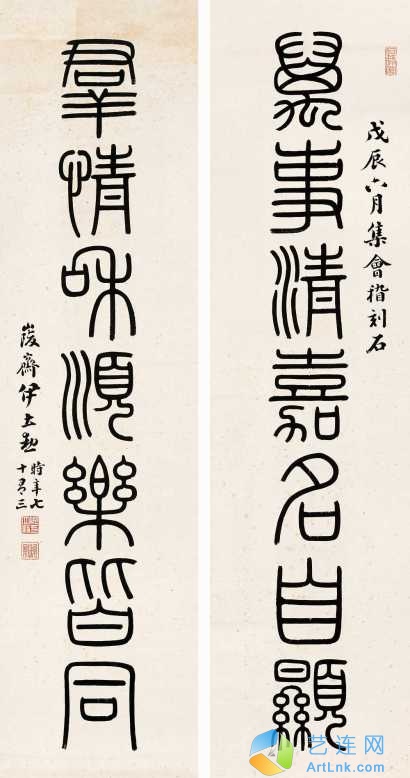 萬事清嘉名自顯
戊辰六月集會稽刻石
羣情和順樂皆同
峻齋伊立勳時年七
十有三
艺连网
ArtLnk.com